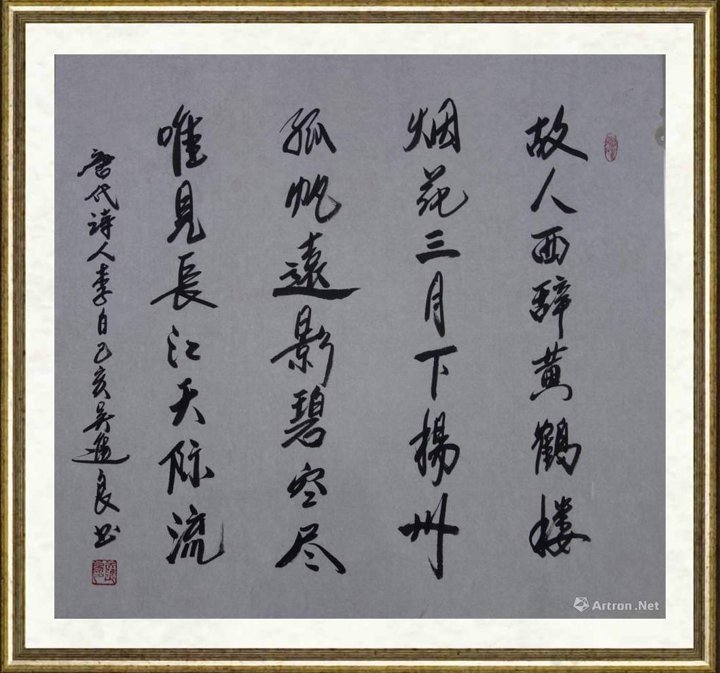 故人西辞黄鹤楼
烟花三月下揚州
孤帆遠影碧空尽
唯見長江天际流
唐代诗人李白己亥吴進良书
Artron.Net